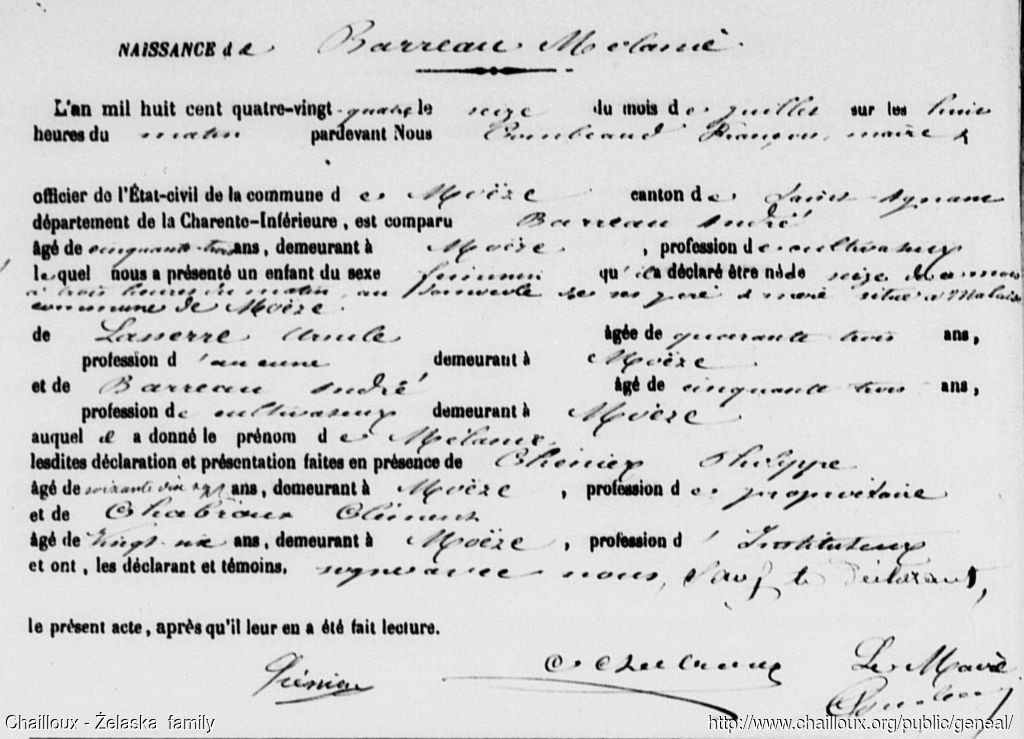 NAISSANCE de Barreau Mélanie.
L'an mil huit cent quatre-vingt-quatre le seize du mois de juillet sur les huit
heures du matin pardevant Nous François, maire &
officier de l'État-civil de la commune de Moëze canton de Saint Agnant
département de la Charente-Inférieure, est comparu Barreau André
âgé de cinquante trois ans, demeurant à Moëze, profession de cultivateur
lequel nous a présenté un enfant du sexe féminin qu'il a déclaré être né le seize de ce mois
à trois heures du matin, au domicile de ses père & mère situé à
commune de Moëze.
de Lasserre âgée de quarante trois ans,
profession d'aucune demeurant à Moëze
et de Barreau André âgé de cinquante trois ans,
profession de cultivateur demeurant à Moëze
auquel il a donné le prénom de Mélanie.
lesdites déclaration et présentation faites en présence de Philippe
âgé de soixante dix sept ans, demeurant à Moëze, profession de propriétaire
et de Clément
âgé de vingt six ans, demeurant à Moëze, profession d'Instituteur
et ont, les déclarant et témoins, signé avec nous, sauf le déclarant,
le présent acte, après qu'il leur en a été fait lecture.
Le Maire
Chailloux - Żelaska family
http://www.chailloux.org/public/geneal/